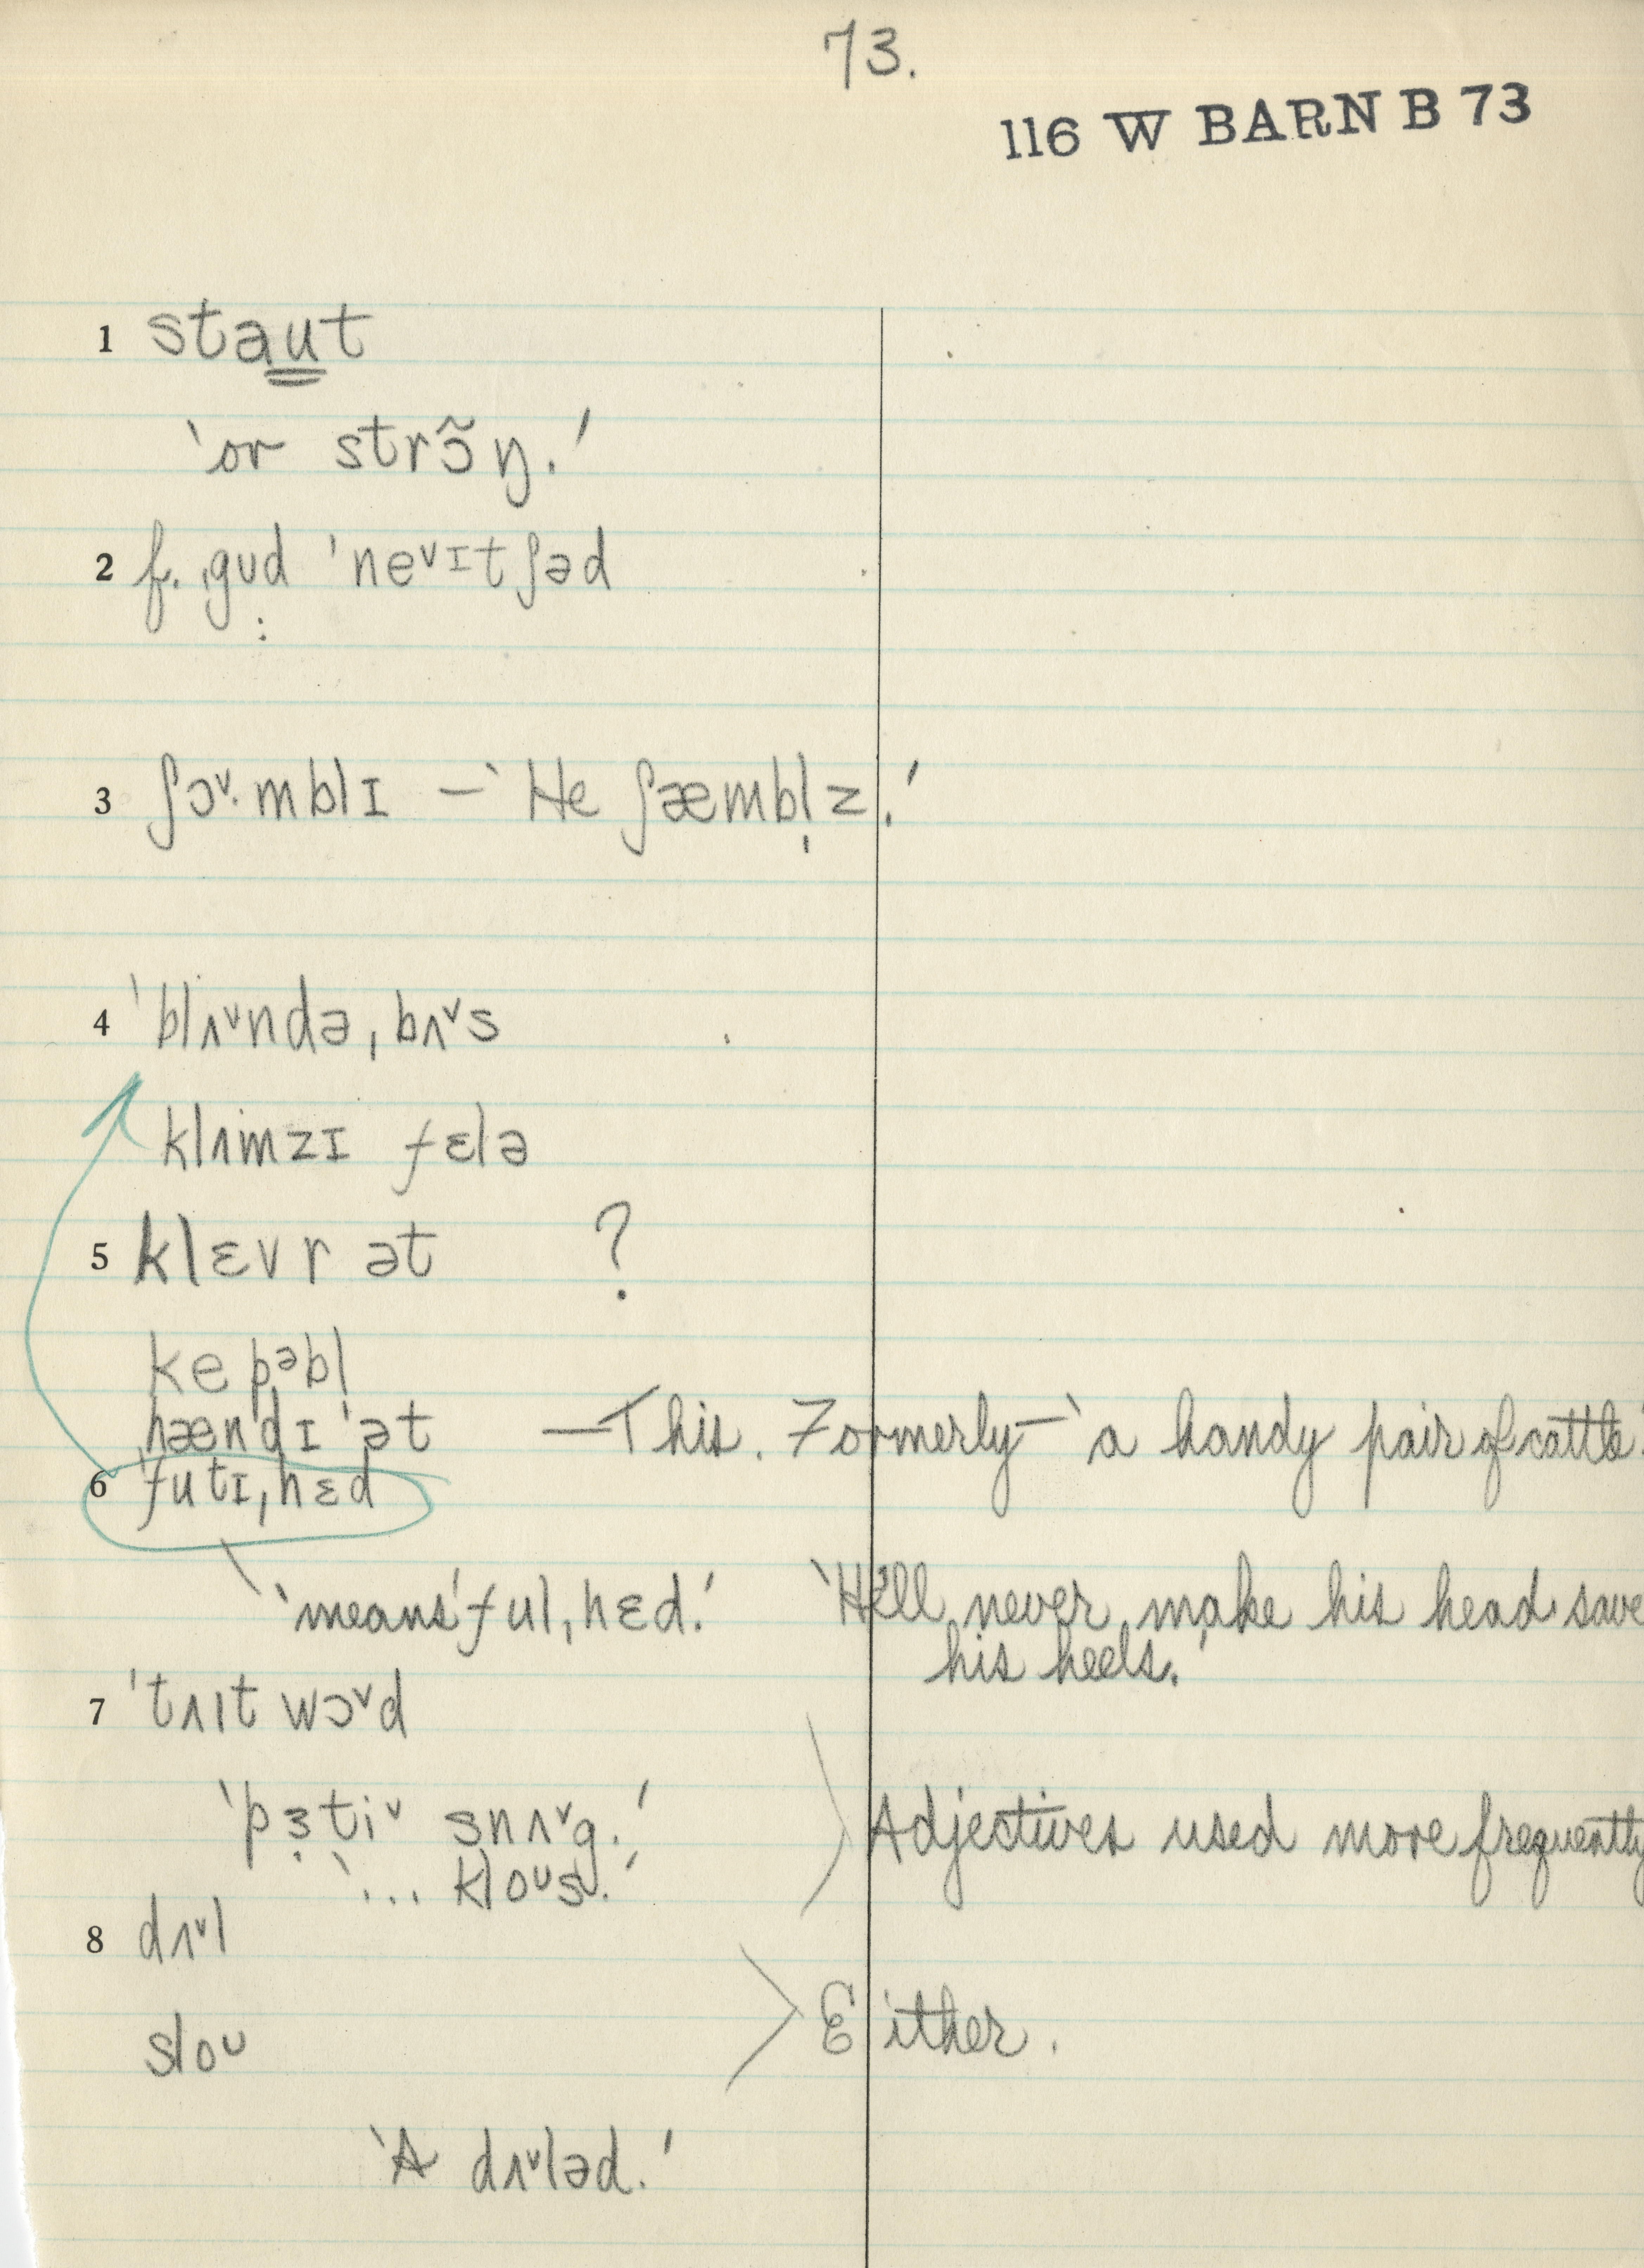 73.
116 W BARN B 73
1 staut
'or strɔ̃ŋ.'
2 f. ˌgud ˈneᵛɪtʃəd
3 ʃɔᵛ·mblɪ — 'He ʃæmbl̩z.'
4 ˈblʌᵛndəˌbʌᵛs
klʌmzɪ fɛlə
5 klɛvr ət ?
kepəbl
hændɪ ət — This. Formerly — 'a handy pair of cattle.'
6 ˈfutɪˌhɛd
'means ˈfulˌhɛd.' 'He'll never make his head save
his heels.'
7 ˈtʌɪt wɔᵛd
'pɜ̣tiᵛ snʌᵛg.' Adjectives used more frequently
'... kloᴜs.'
8 dʌᵛl
sloᴜ Either.
'A dʌᵛləd.'